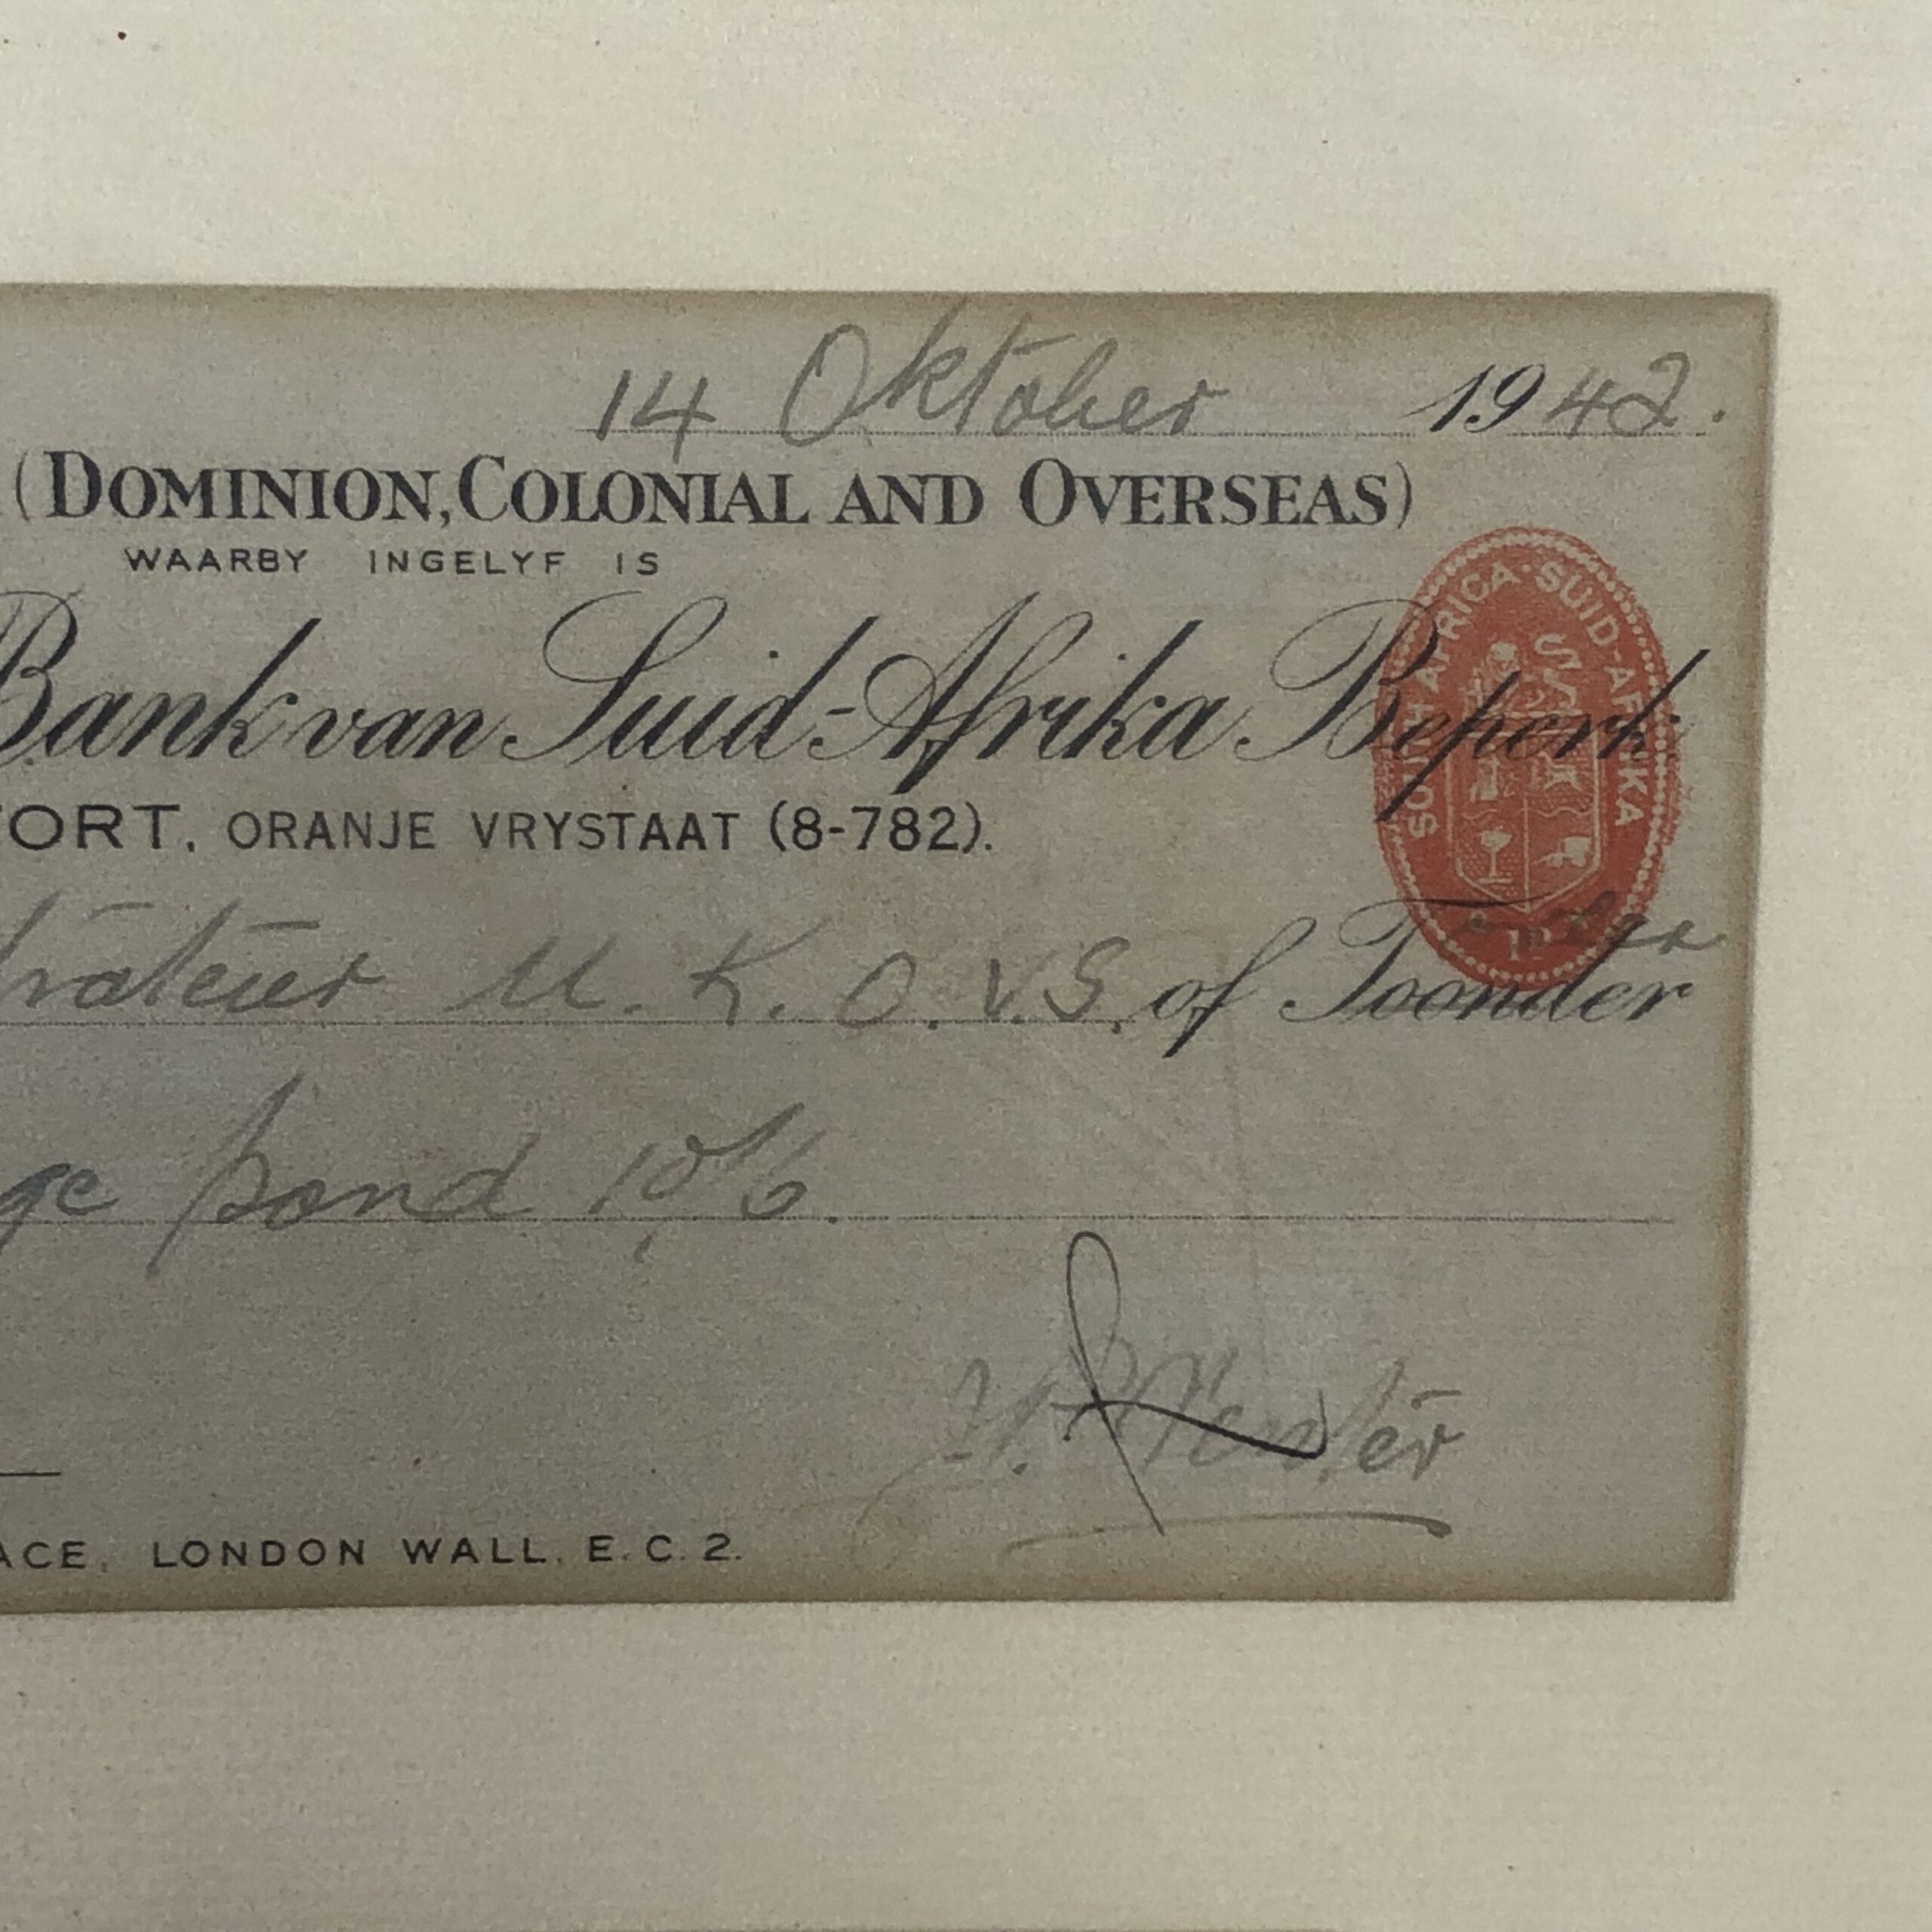 14 Oktober 1942.
(DOMINION, COLONIAL AND OVERSEAS)
WAARBY INGELYF IS
Bank van Suid-Afrika Beperk.
SOUTH AFRICA · SUID-AFRIKA
ORT, ORANJE VRYSTAAT (8-782).
1D
Order
rateur U. K. O. V.S. of Toonder
ge pond 10/6.
ACE, LONDON WALL. E. C. 2.